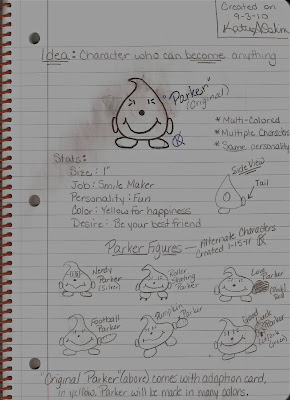 Created on
9-3-10
Idea: Character who can become anything
"Parker"
(Original)
* Multi-Colored
* Multiple Characters
* Same personality
Stats:
Size: 1"
Job: Smile Maker
Personality: Fun
Color: Yellow for happiness
Desire: Be your best friend
Side View
Tail
Parker Figures – Alternate Characters
Created 1-15-11
Nerdy Parker (Silver)
Roller Skating Parker
Parker
Football Parker
Pumpkin Parker
Parker
"Original Parker" (above) comes with adoption card,
in yellow. Parker will be made in many colors.